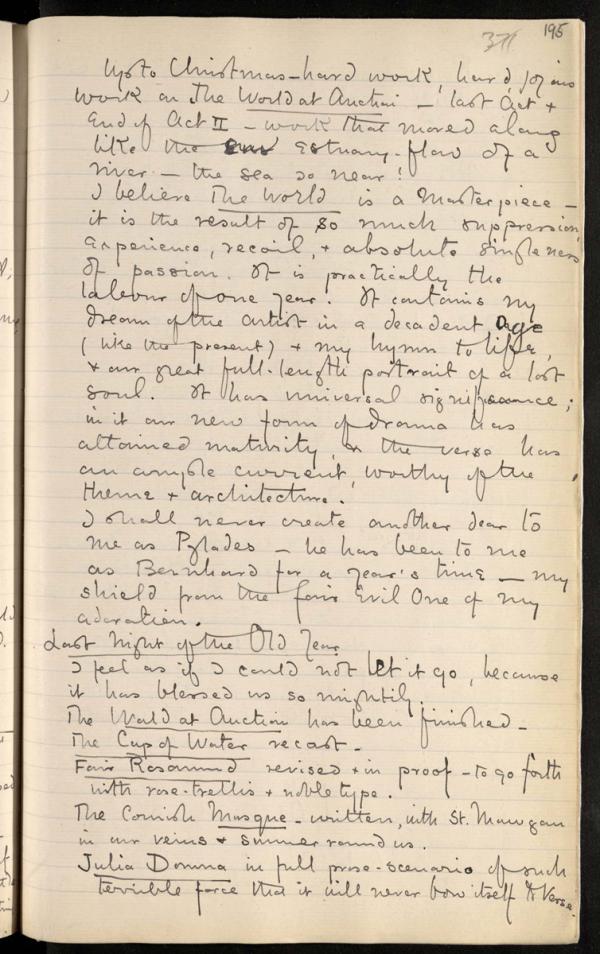 371 195
Up to Christmas – hard work, hard, joyous
work on The World at Auction – last Act &
End of Act II – work that moved along
like the estuary-flow of a
river – the sea so near!
I believe The World is a Masterpiece –
it is the result of so much suppression,
experience, recoil, & absolute singleness
of passion. It is practically the
labour of one year. It contains my
dream of the artist in a decadent age
(like the present) & my hymn to life,
& our great full-length portrait of a lost
soul. It has universal significance;
in it our new form of drama has
attained maturity, & the verse has
an ample current, worthy of the
theme & architecture.
I shall never create another dear to
me as Pylades – he has been to me
as Bernhard for a year's time – my
shield from the fair Evil One of my
adoration.
Last Night of the Old Year
I feel as if I could not let it go, because
it has blessed us so mightily.
The World at Auction has been finished –
The Cup of Water recast –
Fair Rosamund revised & in proof – to go forth
with rose-trellis & noble type.
The Cornish Masque – written, with St. Mawgan
in our veins & summer round us.
Julia Domna in full prose-scenario of such
terrible force that it will never bow itself to Verse.